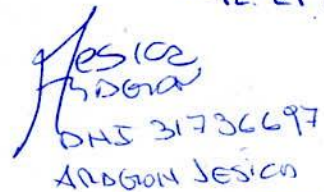 Jesica
Aragon
DNI 31736697
ARAGON JESICA